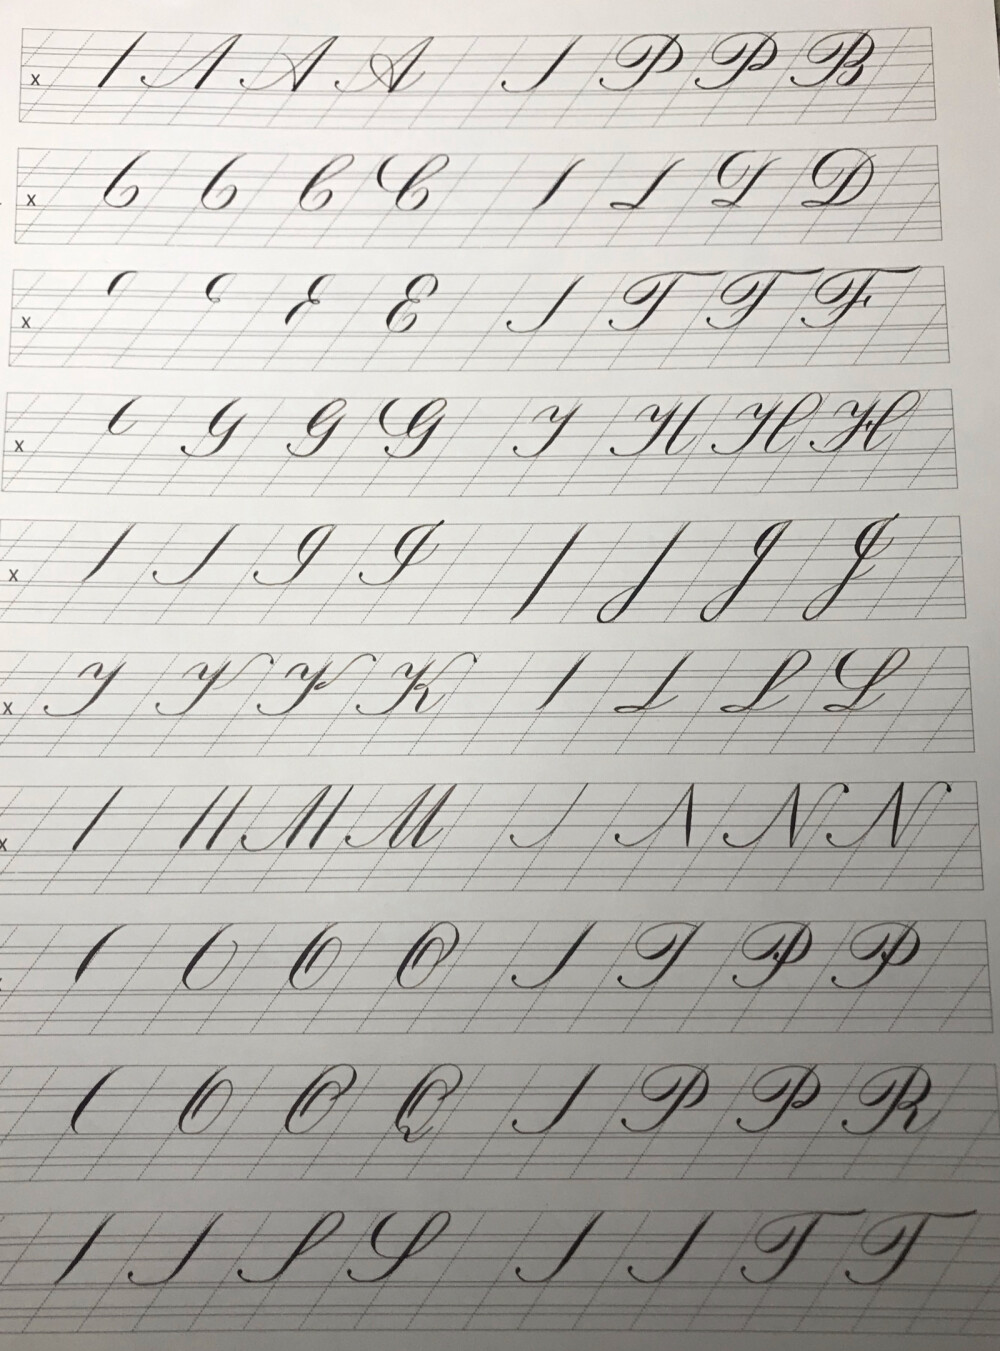 x A B
x C D
x E F
x G H
x I J
x K L
x M N
O P
Q R
S T